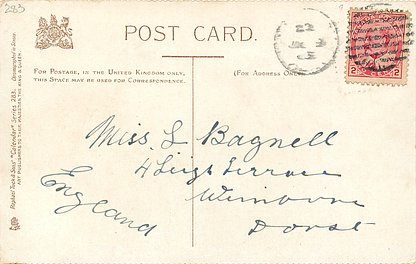 283
POST CARD.
FOR POSTAGE, IN THE UNITED KINGDOM ONLY,
THIS SPACE MAY BE USED FOR CORRESPONDENCE.
(FOR ADDRESS ONLY.)
Miss L Bagnell
4 Leigh Terrace
Wimborne
Dorset
England
Raphael Tuck & Sons' "Calendar" Series 283.
ART PUBLISHERS TO THEIR MAJESTIES THE KING & QUEEN.
2 2